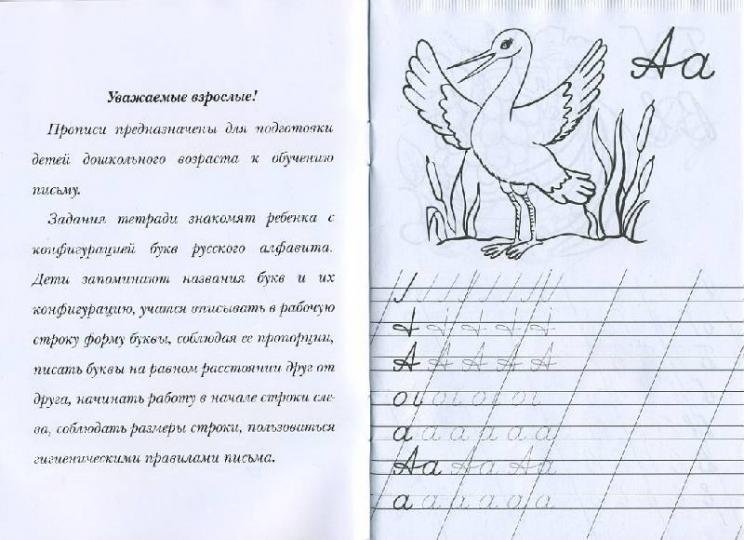 Уважаемые взрослые!
Прописи предназначены для подготовки
детей дошкольного возраста к обучению
письму.
Задания тетради знакомят ребенка с
конфигурацией букв русского алфавита.
Дети запоминают названия букв и их
конфигурацию, учатся вписывать в рабочую
строку форму буквы, соблюдая ее пропорции,
писать буквы на равном расстоянии друг от
друга, начинать работу в начале строки сле-
ва, соблюдать размеры строки, пользоваться
гигиеническими правилами письма.
Аа
А А А А А
а а а а а а
Аа Аа Аа
а а а а а а